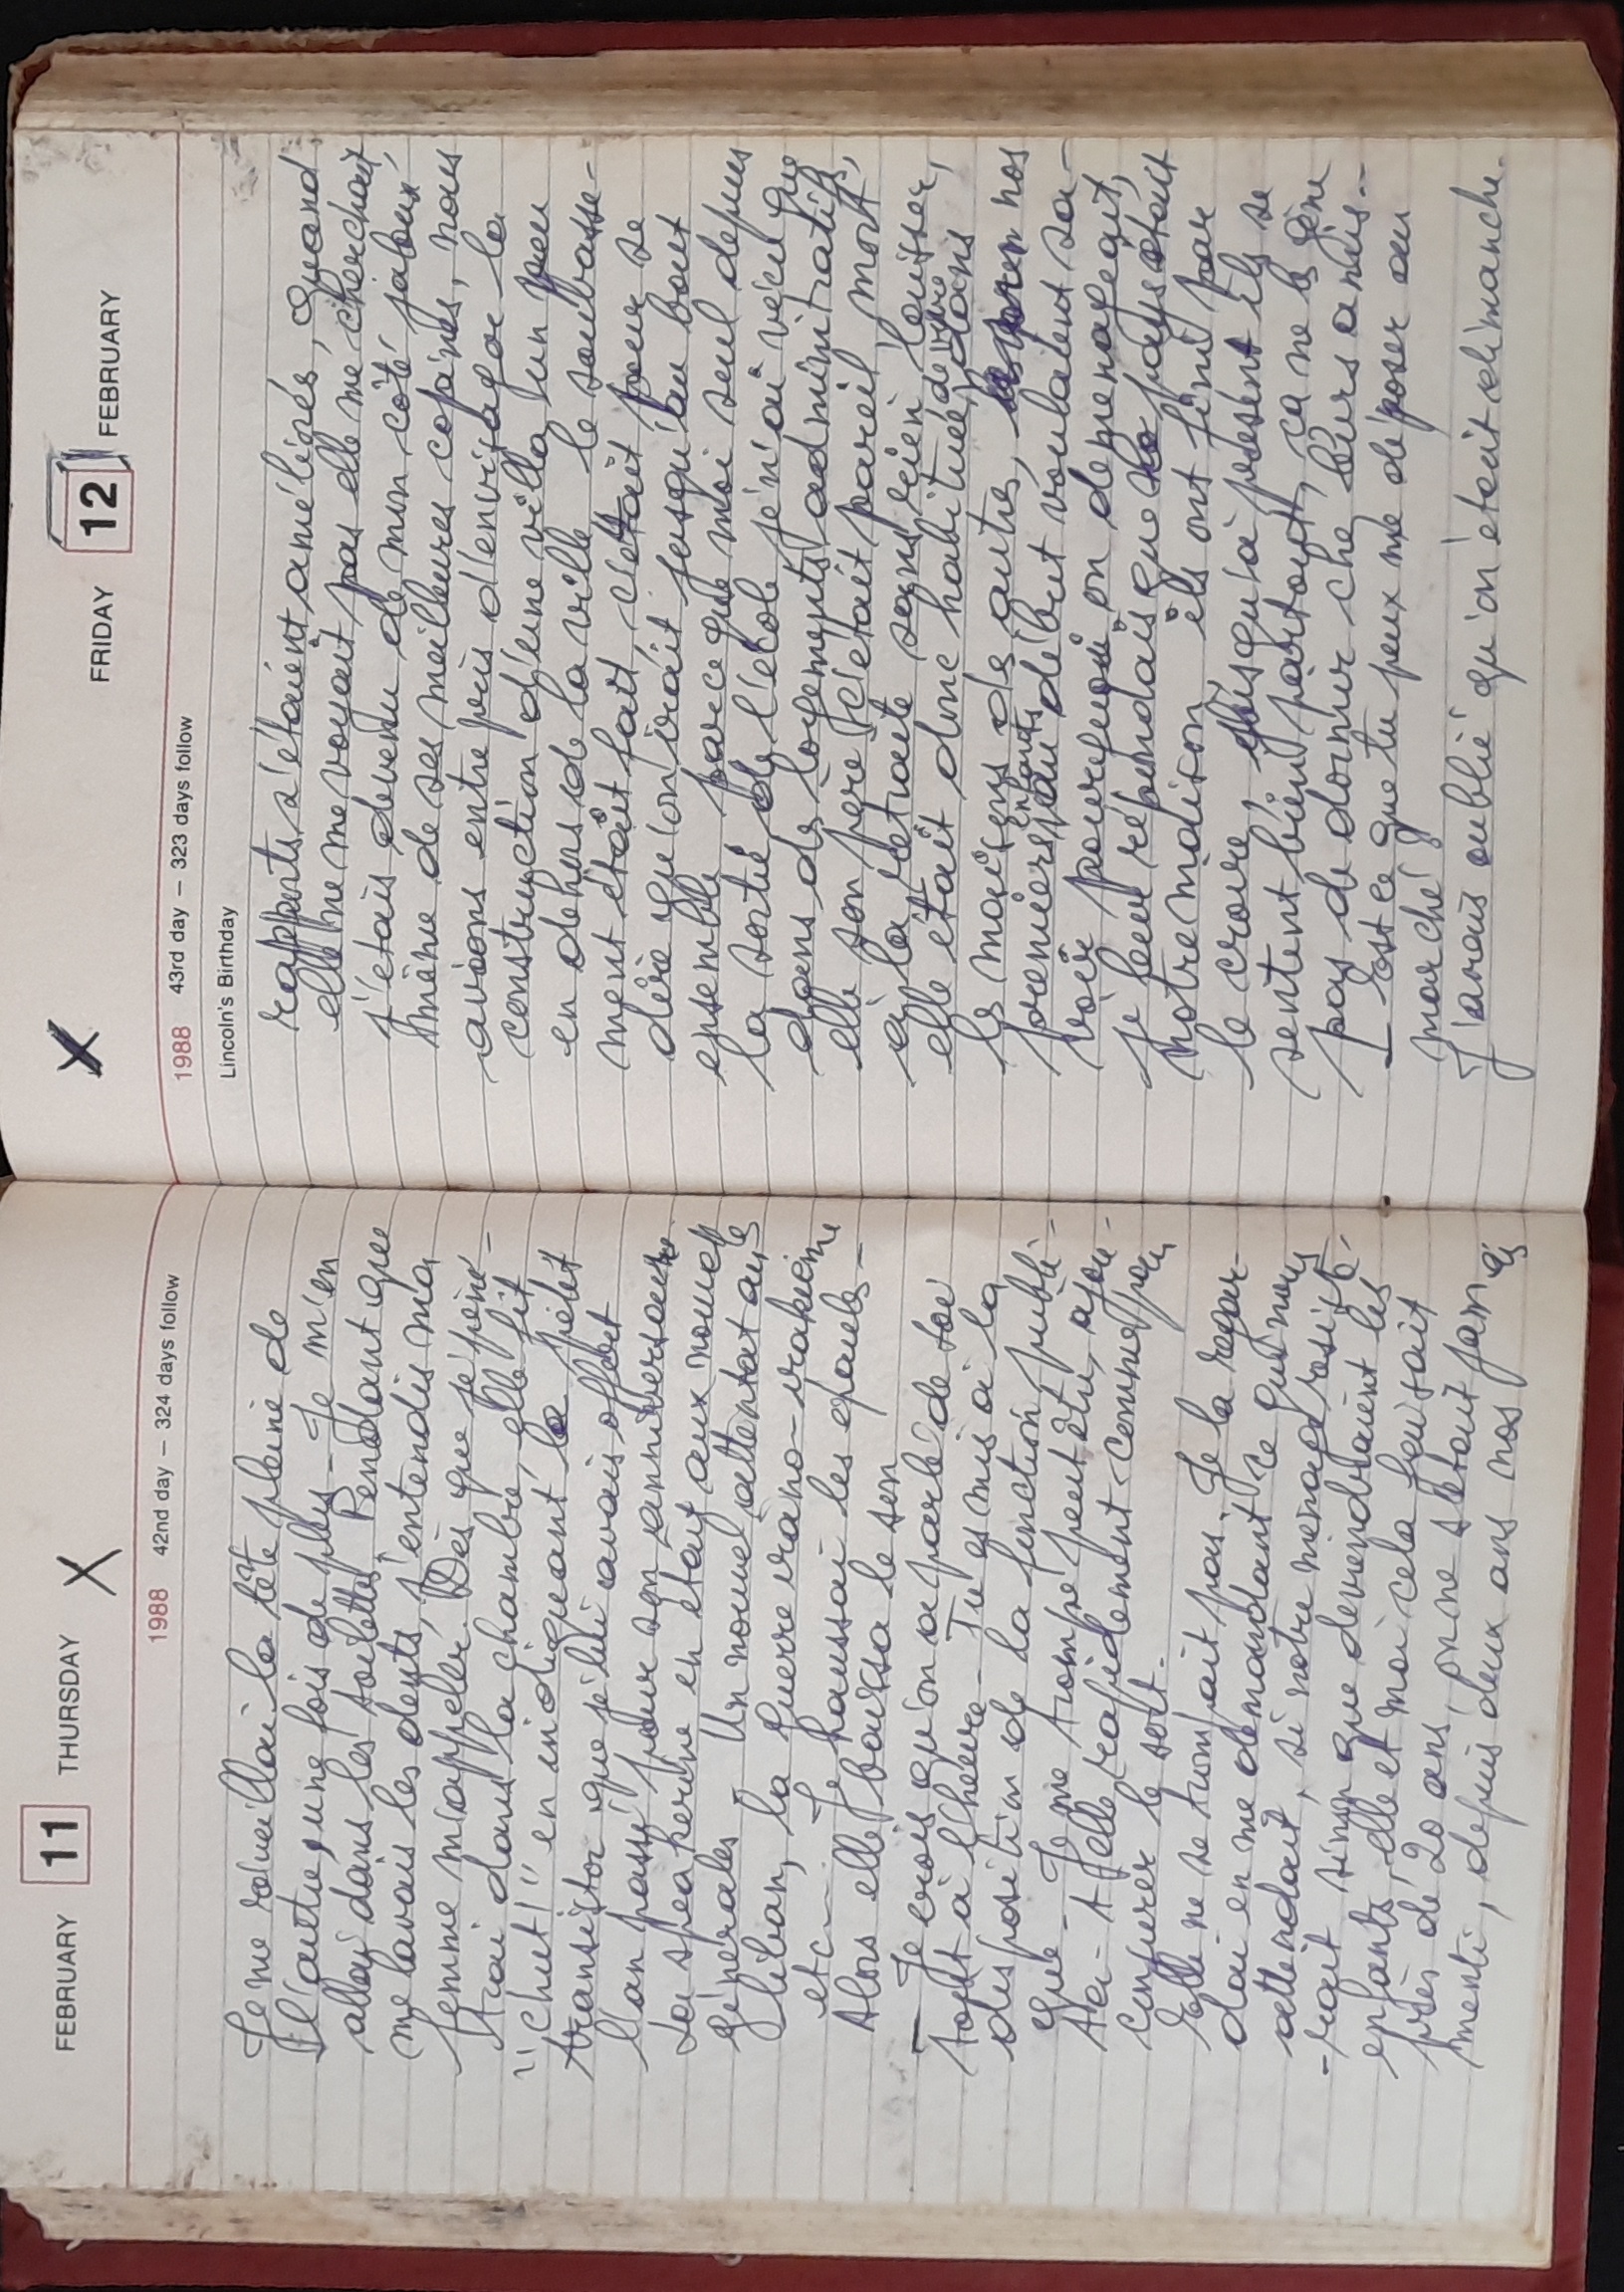 FEBRUARY 11 THURSDAY
1988 42nd day – 324 days follow
Je me réveillai la tête pleine de
l'autre, une fois de plus – Je m'en
allai dans les toilettes. Pendant que
me lavais les dents, j'entendis ma
femme m'appeler. Dès que je péné-
trai dans la chambre, elle fit
"chut!" en indiquant le petit
transistor que je lui avais offert
l'an passé pour son anniversaire
La speakerine en était aux nouvelles
générales. Un nouvel attentat au
Liban, la guerre irano-irakienne
etc – Je haussai les épaules –
Alors elle baissa le son
– Je crois qu'on a parlé de toi
tout à l'heure – Tu es mis à la
disposition de la fonction publi-
que – Je me trompe peut être, ajou-
ta-t-elle rapidement comme pour
conjurer le sort.
Elle ne se trompait pas. Je la regar-
dai en me demandant ce qui nous
attendait, si notre ménage résiste-
-rait sinon que deviendraient les
enfants, elle et moi cela faisait
près de 20 ans, on ne s'était jamais
menti, depuis deux ans nos
FRIDAY 12 FEBRUARY
1988 43rd day – 323 days follow
Lincoln's Birthday
rapports s'étaient améliorés, quand
elle ne me voyait pas elle me cherchait,
j'étais devenu de mon côté jaloux
même de ses meilleures copines, nous
avions entre pris d'envisager la
construction d'une villa un peu
en dehors de la ville le soubasse-
ment était fait, c'était pour se
dire qu'on irait jusqu'au bout
ensemble parce que moi seul depuis
la sortie de l'école je n'ai vécu que
dans des logements administratifs,
elle son père c'était pareil, mort
à la retraite sans rien laisser,
elle était donc habituée de vivre dans
les maisons des autres, nos
premiers enfants au début voulaient sa-
voir pourquoi on déménageait,
je leur répondais que le pays était
notre maison, ils ont fini par
le croire, jusqu'à présent ils se
sentent bien partout, ça ne les gêne
pas de dormir che leurs amis..
– Est ce que tu peux me déposer au
marché ?
J'avais oublié qu'on était dimanche.